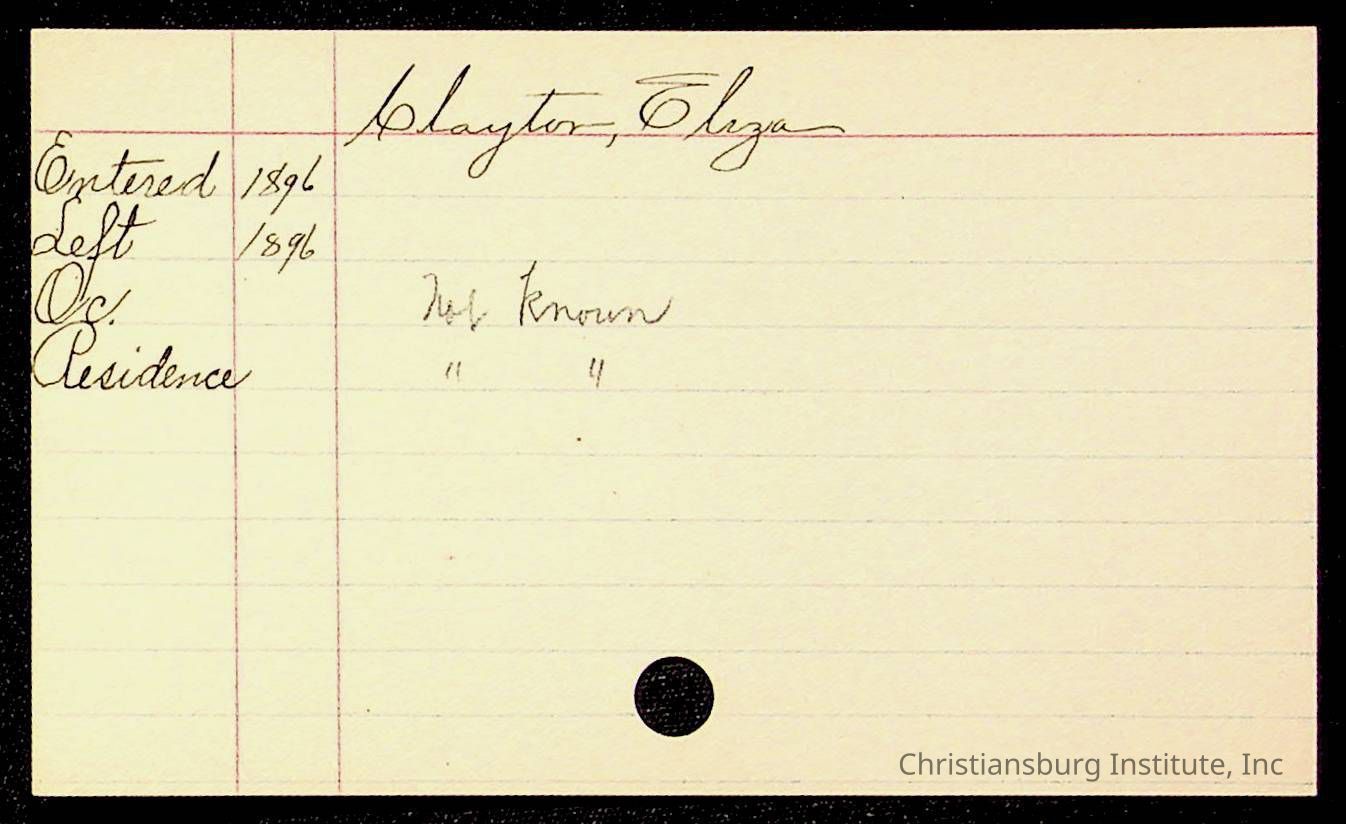 Clayton, Eliza
Entered 1896
Left 1896
Oc. Not Known
Residence " "
Christiansburg Institute, Inc